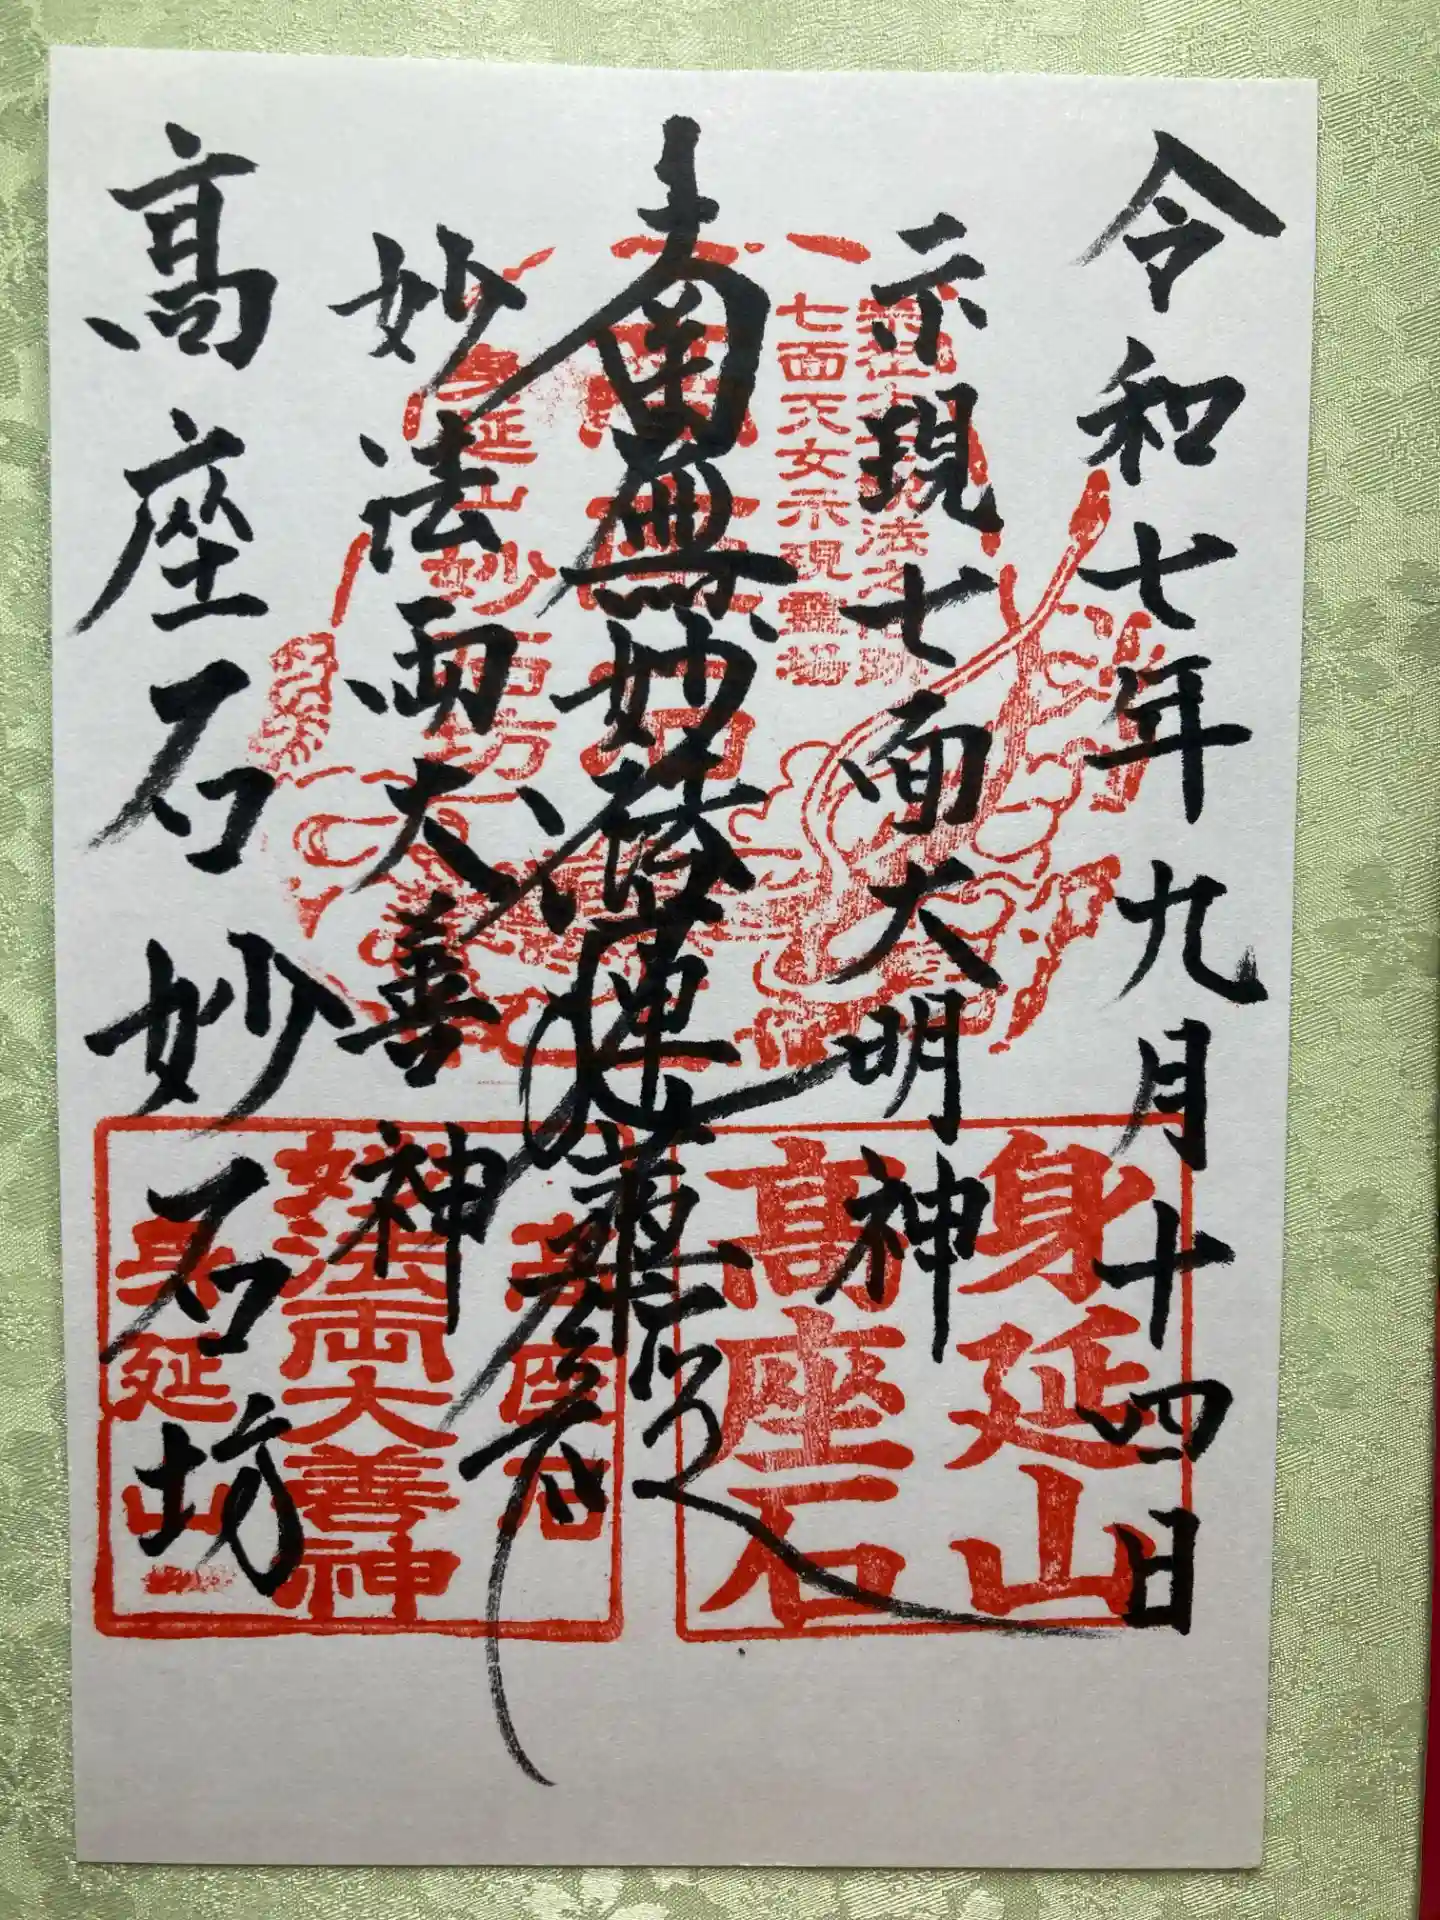 令和七年九月十四日
示現七面大明神
南無妙法蓮華経
妙法両大善神
高座石妙石坊
七面天女示現霊場
身延山
妙石坊
身延山
高座石
高座石
妙法両大善神
身延山